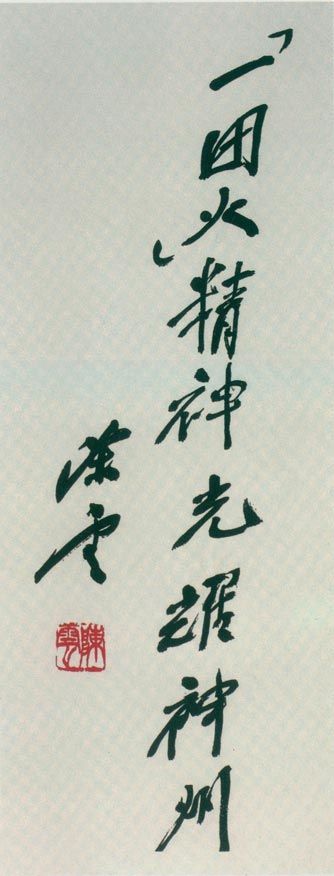 「一团火」精神光耀神州
陈云
陳雲